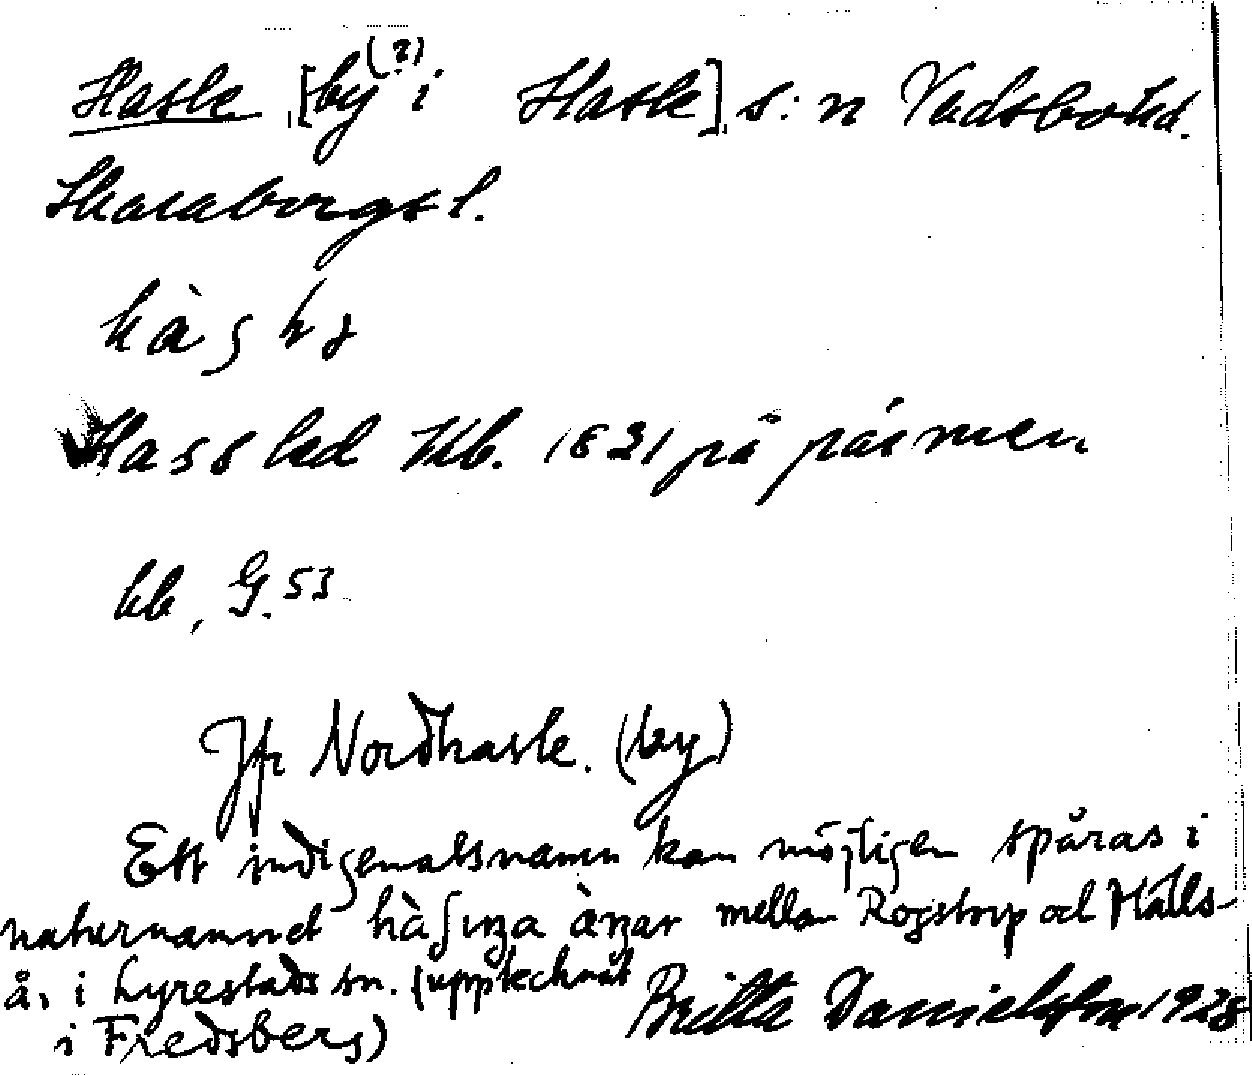 Hasle [by(?) i Hasle] s:n Vadsbo hd.
Skaraborgs l.
Hassled Kb. 1831 på pärmen
kb, G. 53
Jfr Nordhasle. (by)
Ett indigenatsnamn kan möjligen spåras i
naturnamnet mellan Rogstorp och Hälls-
å, i Lyrestads sn. (upptecknat
i Fredsberg)
Britta Danielsson 1928